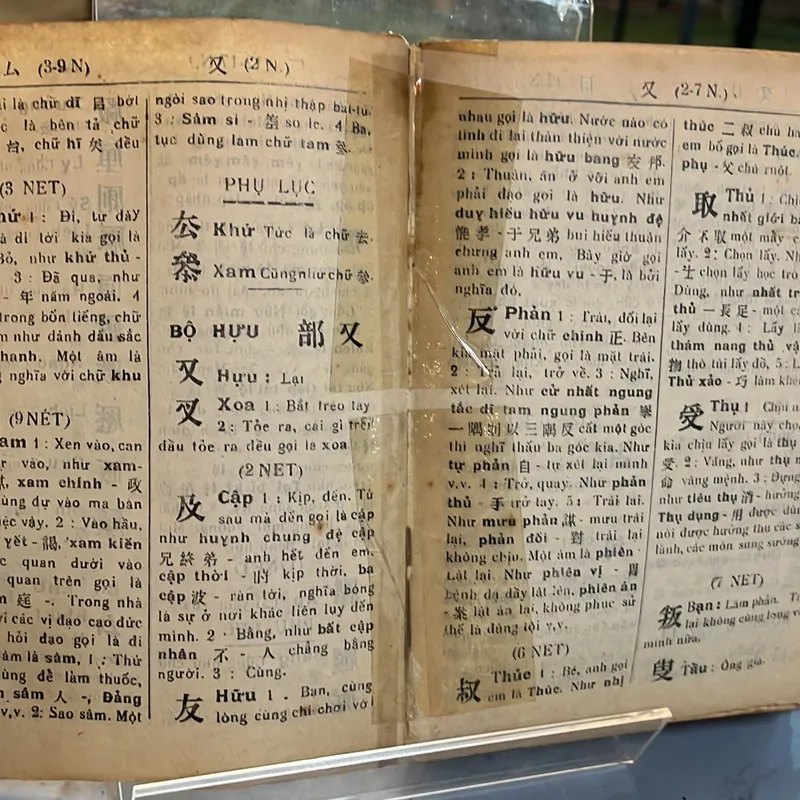 ム (3-9 N)
又 (2 N.)
là chữ dĩ 㠯 bởi
là bên tả chữ
台, chữ hĩ 矣 đều
(3 NET)
1 : Đi, tự đây
đi tới kia gọi là
Bỏ, như khứ thủ -
3 : Đã qua, như
- 年 năm ngoái. 4
trong bốn tiếng, chữ
như dánh dấu sắc
thanh. Một âm là
nghĩa với chữ khu
(9 NÉT)
1 : Xen vào, can
vào, như xam-
xam chính - 政
dự vào ma bàn
việc vậy. 2 : Vào hầu,
yết - 謁, xam kiến
quan dưới vào
quan trên gọi là
庭 -. Trong nhà
các vị đạo cao đức
hỏi đạo gọi là đi
âm là sâm, 1 : Thứ
dùng để làm thuốc,
sâm 人 -, Đảng
v.v. 2: Sao sâm. Một
ngôi sao trong nhị thập bát-tú.
3 : Sâm si - 差 so le. 4 Ba,
tục dùng làm chữ tam 叄.
PHỤ LỤC
厺 Khứ Tức là chữ 去.
叅 Xam Cũng như chữ 參.
BỘ HỰU 部 又
又 Hựu : Lại
叉 Xoa 1 : Bắt tréo tay
2 : Tỏe ra, cái gì trên
đầu tỏe ra đều gọi là xoa.
(2 NET)
及 Cập 1 : Kịp, đến. Từ
sau mà đến gọi là cập
như huynh chung đệ cập
兄 終 弟 - anh hết đến em,
cập thời - 時 kịp thời, ba
cập 波 - ràn tới, nghĩa bóng
là sự ở nơi khác liên lụy đến
mình. 2 - Bằng, như bất cập
nhân 不 - 人 chẳng bằng
người. 3 : Cùng.
友 Hữu 1 . Bạn, cùng
lòng cùng chí chơi với
又 (2-7 N.)
nhau gọi là hữu. Nước nào có
tình đi lại thân thiện với nước
mình gọi là hữu bang 友 邦.
2 : Thuận, ăn ở với anh em
phải đạo gọi là hữu. Như
duy hiếu hữu vu huynh đệ
惟 孝 - 于 兄 弟 bui hiếu thuận
chưng anh em, Bây giờ gọi
anh em là hữu vu - 于, là bởi
nghĩa đó.
反 Phản 1 : Trái, đối lại
với chữ chính 正. Bên
kia mặt phải, gọi là mặt trái.
2 : Trả lại, trở về. 3 : Nghĩ,
xét lại. Như cử nhất ngung
tắc dĩ tam ngung phản 舉
一 隅 則 以 三 隅 反 cất một góc
thì nghĩ thấu ba góc kia. Như
tự phản 自 - tự xét lại mình
v.v. 4 : Trở, quay. Như phản
thủ - 手 trở tay. 5 : Trái lại.
Như mưu phản 謀 - mưu trái
lại, phản đối - 對 trái lại
không chịu. Một âm là phiên
Lật lại. Như phiên vị - 胃
bệnh dạ dầy lật lên, phiên án
- 案 lật án lại, không phục sử
thế là đúng tội v.v.
(6 NET)
叔 Thúc 1 : Bé, anh gọi
em là Thúc. Như nhị
thúc 二 叔 chú
em bố gọi là Thúc.
phụ - 父 chú ruột.
取 Thủ 1 :
nhất giới
介 不 取 một mảy
lấy. 2 : Chọn lấy. Như
- 士 chọn lấy học trò
Dùng, như nhất
thủ 一 長 足 - một
lấy dùng. 4 : Lấy
thám nang thủ vật
物 thò túi lấy đồ, 5 :
Thử xảo - 巧 làm
受 Thụ 1
Người này cho,
kia chịu lấy gọi là thụ
受. 2 : Vâng, như thụ
命 vâng mệnh. 3 : Dựng
như tiêu thụ 消 - hưởng
Thụ dụng - 用 được dùng
nói được hưởng thụ các
lành, các món sung sướng
(7 NET)
叛 Bạn : Làm phản.
lại không cùng lòng với
mình nữa.
叟 Tẩu : Ông già.